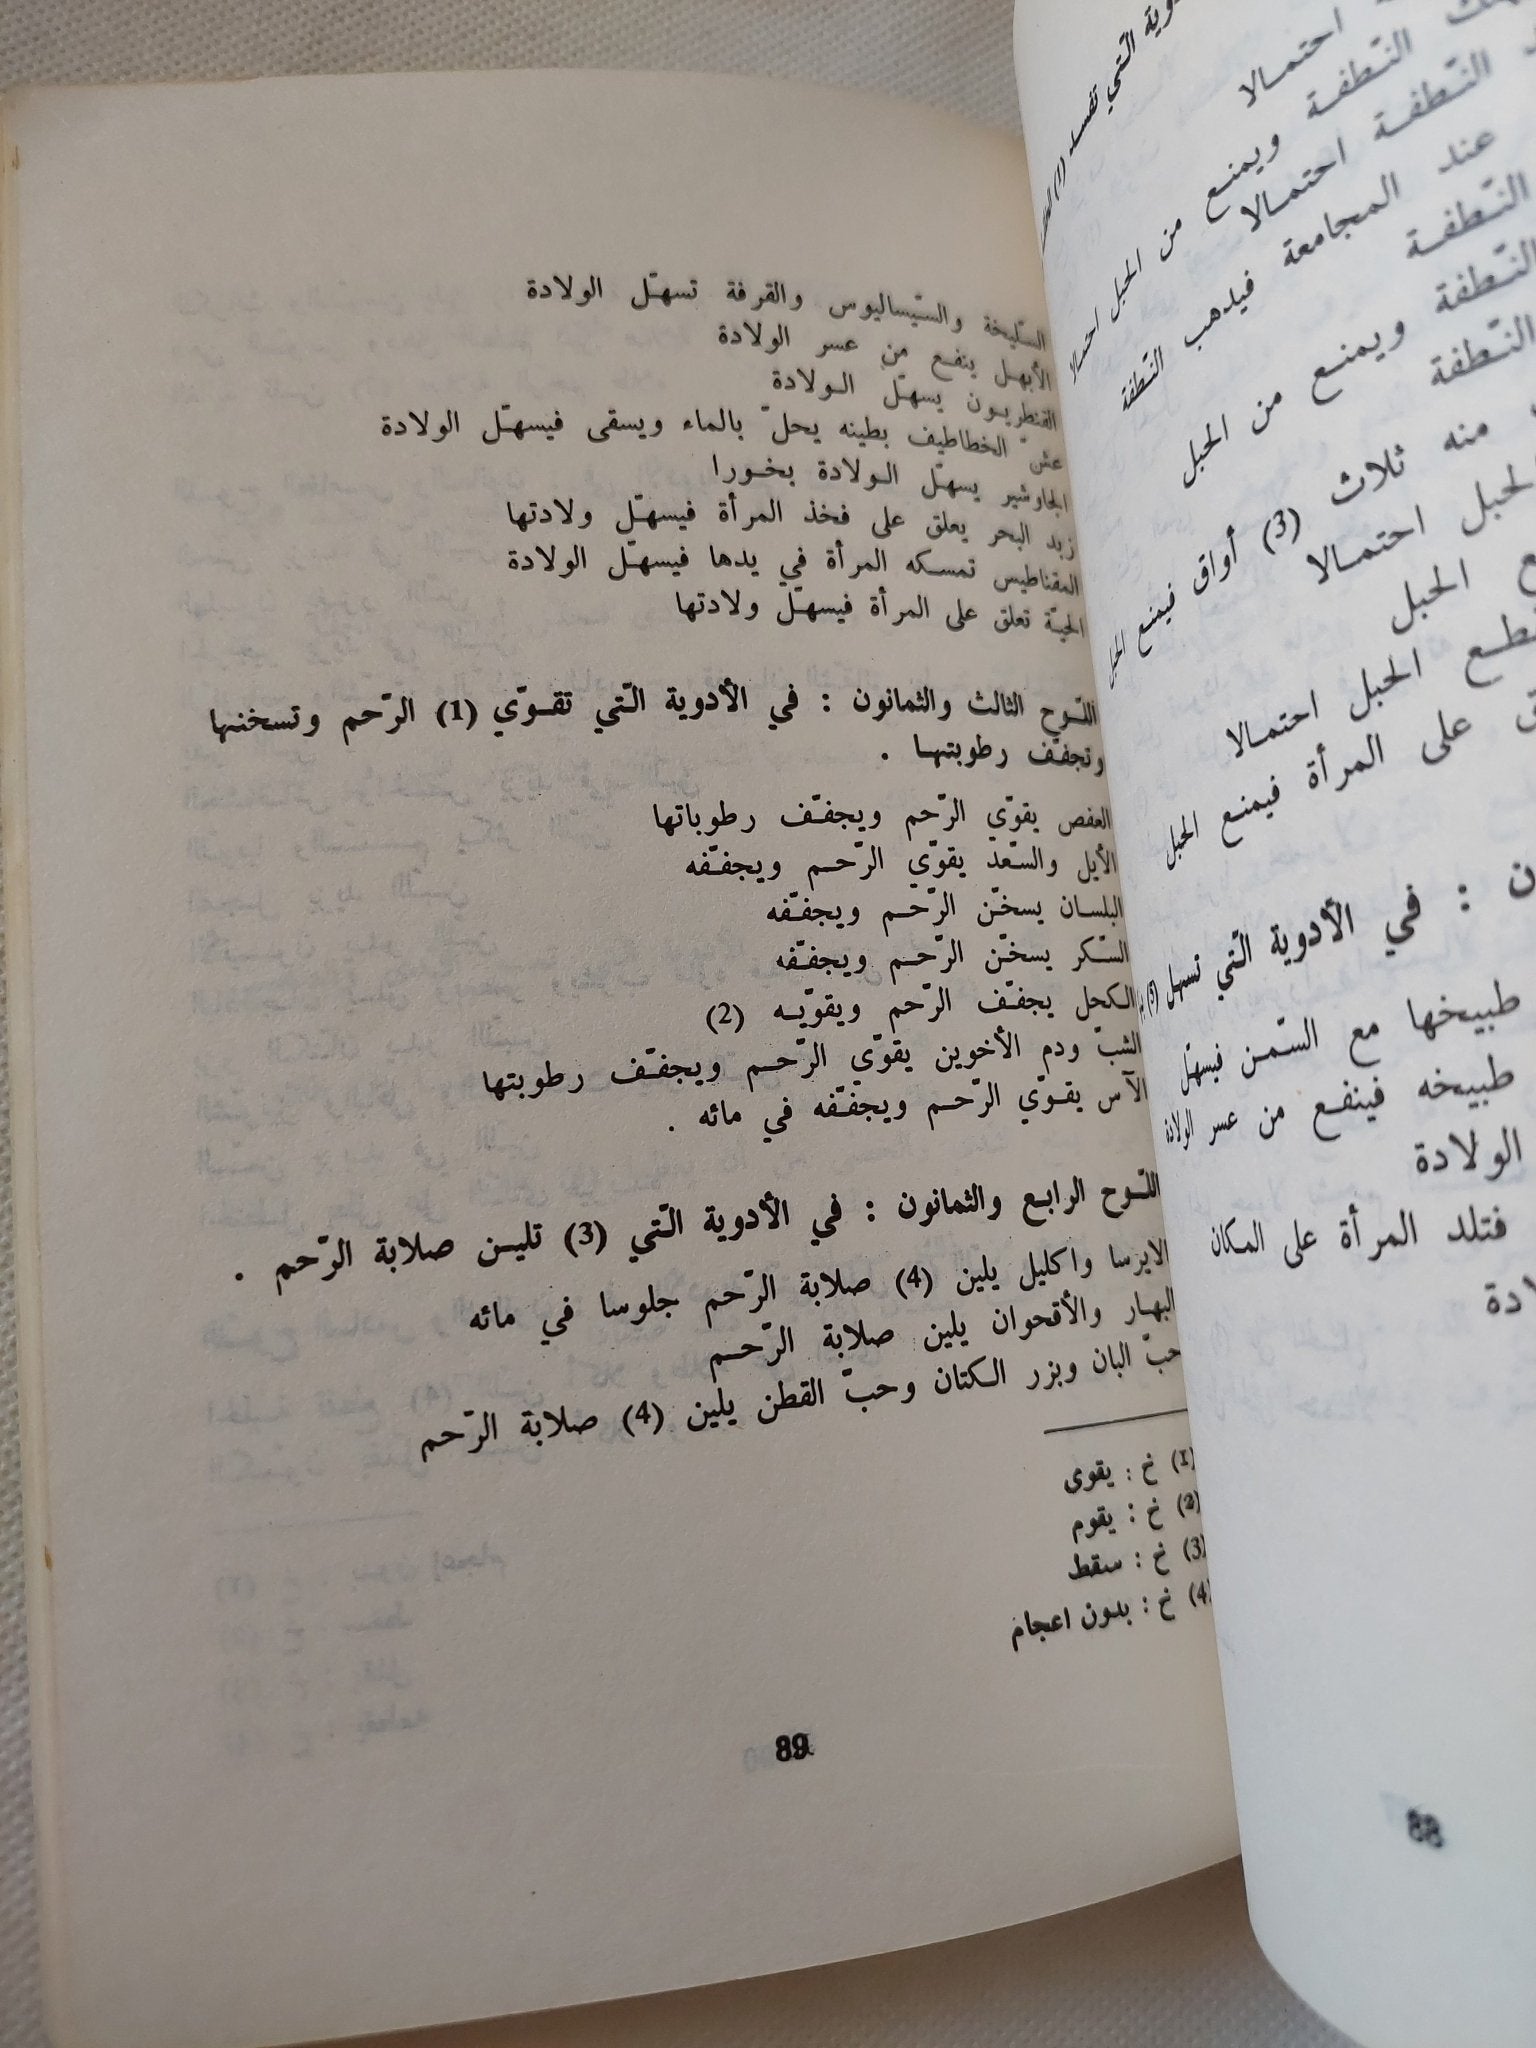 السّليخة والسّيساليوس والقرفة تسهّل الولادة
الأبهل ينفع من عسر الولادة
القنطريون يسهّل الولادة
عشّ الخطاطيف بطينه يحلّ بالماء ويسقى فيسهّل الولادة
الجاوشير يسهّل الولادة بخورا
زبد البحر يعلق على فخذ المرأة فيسهّل ولادتها
المقناطيس تمسكه المرأة في يدها فيسهّل الولادة
الحيّة تعلق على المرأة فيسهّل ولادتها
اللّوح الثالث والثمانون : في الأدوية الّتي تقوّي (1) الرّحم وتسخنها
وتجفّف رطوبتها .
العفص يقوّي الرّحم ويجفّف رطوباتها
الأيل والسّعد يقوّي الرّحم ويجفّفه
البلسان يسخّن الرّحم ويجفّفه
السّكر يسخّن الرّحم ويجفّفه
الكحل يجفّف الرّحم ويقوّيه (2)
الشبّ ودم الأخوين يقوّي الرّحم ويجفّف رطوبتها
الآس يقوّي الرّحم ويجفّفه في مائه .
اللّوح الرابع والثمانون : في الأدوية الّتي (3) تلين صلابة الرّحم .
الايرسا واكليل يلين (4) صلابة الرّحم جلوسا في مائه
البهار والأقحوان يلين صلابة الرّحم
حبّ البان وبزر الكتان وحبّ القطن يلين (4) صلابة الرّحم
(1) خ : يقوى
(2) خ : يقوم
(3) خ : سقط
(4) خ : بدون اعجام
89
الّتي تفسد (1)
احتمالا
النّطفة ويمنع من الحبل احتمالا
النّطفة احتمالا
عند المجامعة فيذهب النّطفة
النّطفة
النّطفة ويمنع من الحبل
النّطفة
منه ثلاث (3) أواق فيمنع الحبل
الحبل احتمالا
الحبل
الحبل احتمالا
على المرأة فيمنع الحبل
: في الأدوية الّتي تسهل (5)
طبيخها مع السّمن فيسهّل
طبيخه فينفع من عسر الولادة
الولادة
فتلد المرأة على المكان
88